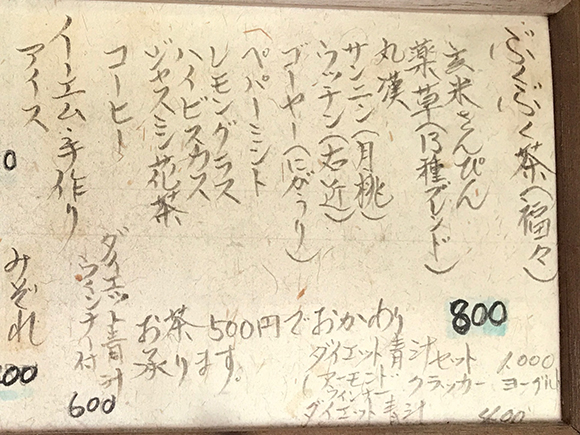 ぶくぶく茶(福々)
800
玄米さんぴん
薬草(13種ブレンド)
丸漢
サンニン(月桃)
ウッチン(右近)
ゴーヤー(にがうり)
ペパーミント
レモングラス
ハイビスカス
ジャスミン花茶
コーヒー
イーエム・手作り
アイス
みぞれ
お茶500円でおかわり
承ります。
ダイエット青汁セット 1000
(アーモンド クラッカー ヨーグルト
ウィンナー
ダイエット青汁
ダイエット青汁
ウィンナー付
600